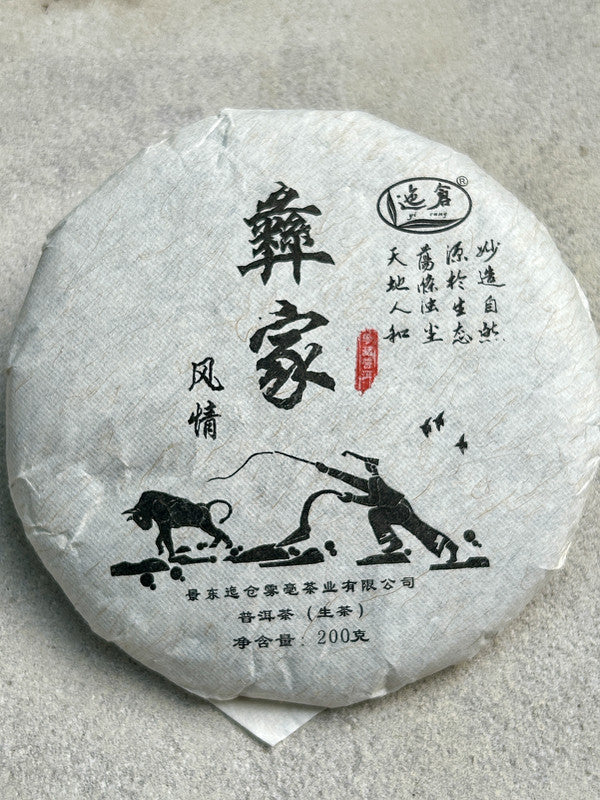 迤倉®
yi cang
妙造自然
源於生态
荡滌浊尘
天地人和
彝家
风情
景东迤仓雾毫茶业有限公司
普洱茶（生茶）
净含量：200克